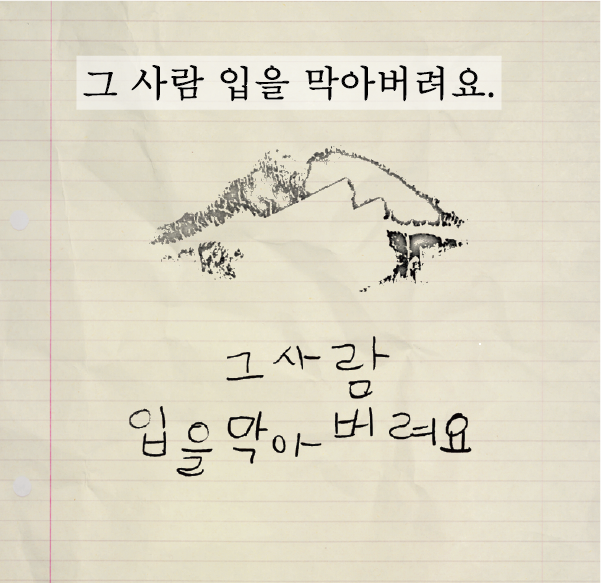 그 사람 입을 막아버려요.
그 사람
입을 막아 버려요